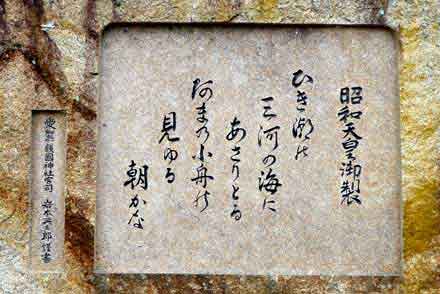 昭和天皇御製
ひき潮の
三河の海に
あさりとる
あまの小舟の
見ゆる
朝かな
愛知縣護國神社宮司